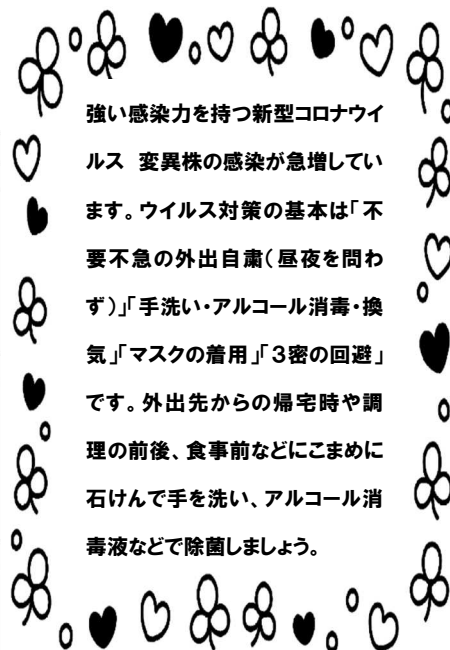 強い感染力を持つ新型コロナウイ
ルス 変異株の感染が急増してい
ます。ウイルス対策の基本は「不
要不急の外出自粛(昼夜を問わ
ず)」「手洗い・アルコール消毒・換
気」「マスクの着用」「3密の回避」
です。外出先からの帰宅時や調
理の前後、食事前などにこまめに
石けんで手を洗い、アルコール消
毒液などで除菌しましょう。